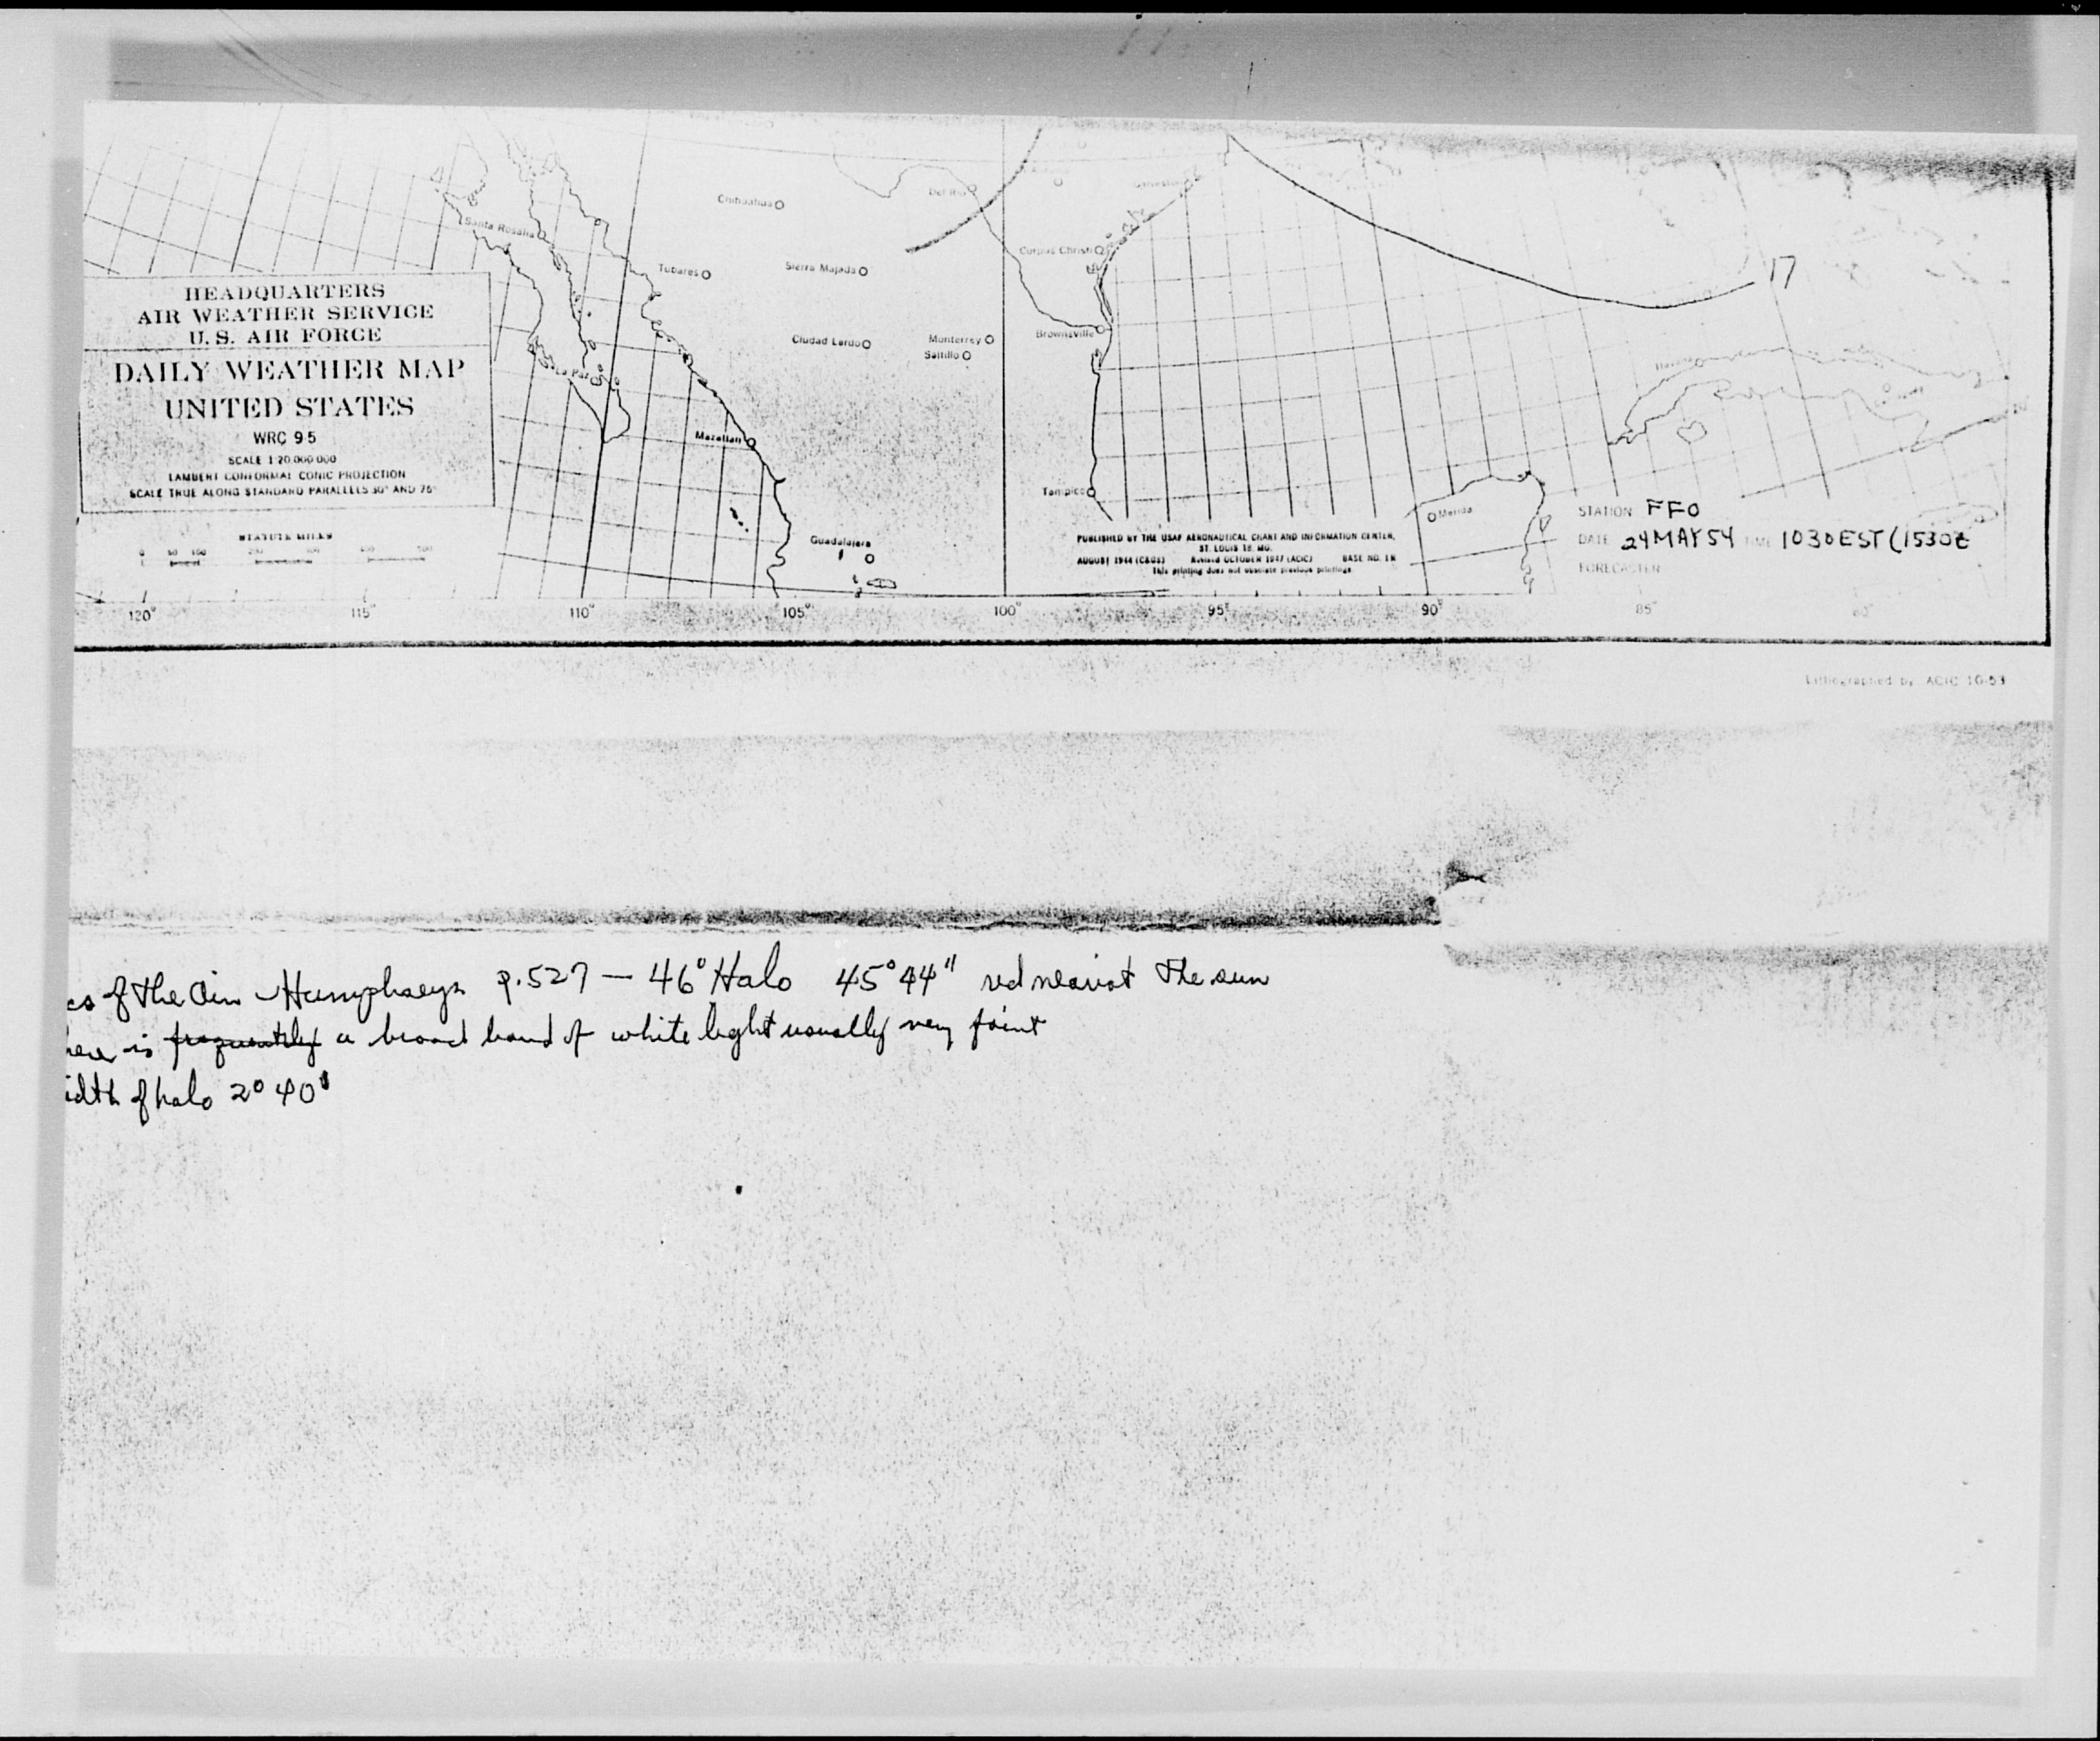 Chihuahua
Del Rio
Galveston
Santa Rosalia
Corpus Christi
Tubares
Sierra Majada
17
HEADQUARTERS
AIR WEATHER SERVICE
U. S. AIR FORCE
DAILY WEATHER MAP
UNITED STATES
WRC 9-5
SCALE 1:20,000,000
LAMBERT CONFORMAL CONIC PROJECTION
SCALE TRUE ALONG STANDARD PARALLELS 30° AND
Brownsville
Ciudad Lerdo
Monterrey
Saltillo
La Paz
Mazatlan
Tampico
Merida
STATION FFO
DATE 24 MAY 54 TIME 1030 EST (1530Z
FORECASTER
STATUTE MILES
Guadalajara
PUBLISHED BY THE USAF AERONAUTICAL CHART AND INFORMATION CENTER,
ST. LOUIS 18, MO.
AUGUST 1944 (C&GS) Revised OCTOBER 1947 (ACIC) BASE NO.
This printing does not obsolete previous printings
120° 115° 110° 105° 100° 95° 90° 85° 80°
Lithographed by ACIC 10-53
cs of the Air - Humphreys p. 527 — 46° Halo 45° 44" red nearest the sun
is frequently a broad band of white light usually very faint
idth of halo 2° 40'